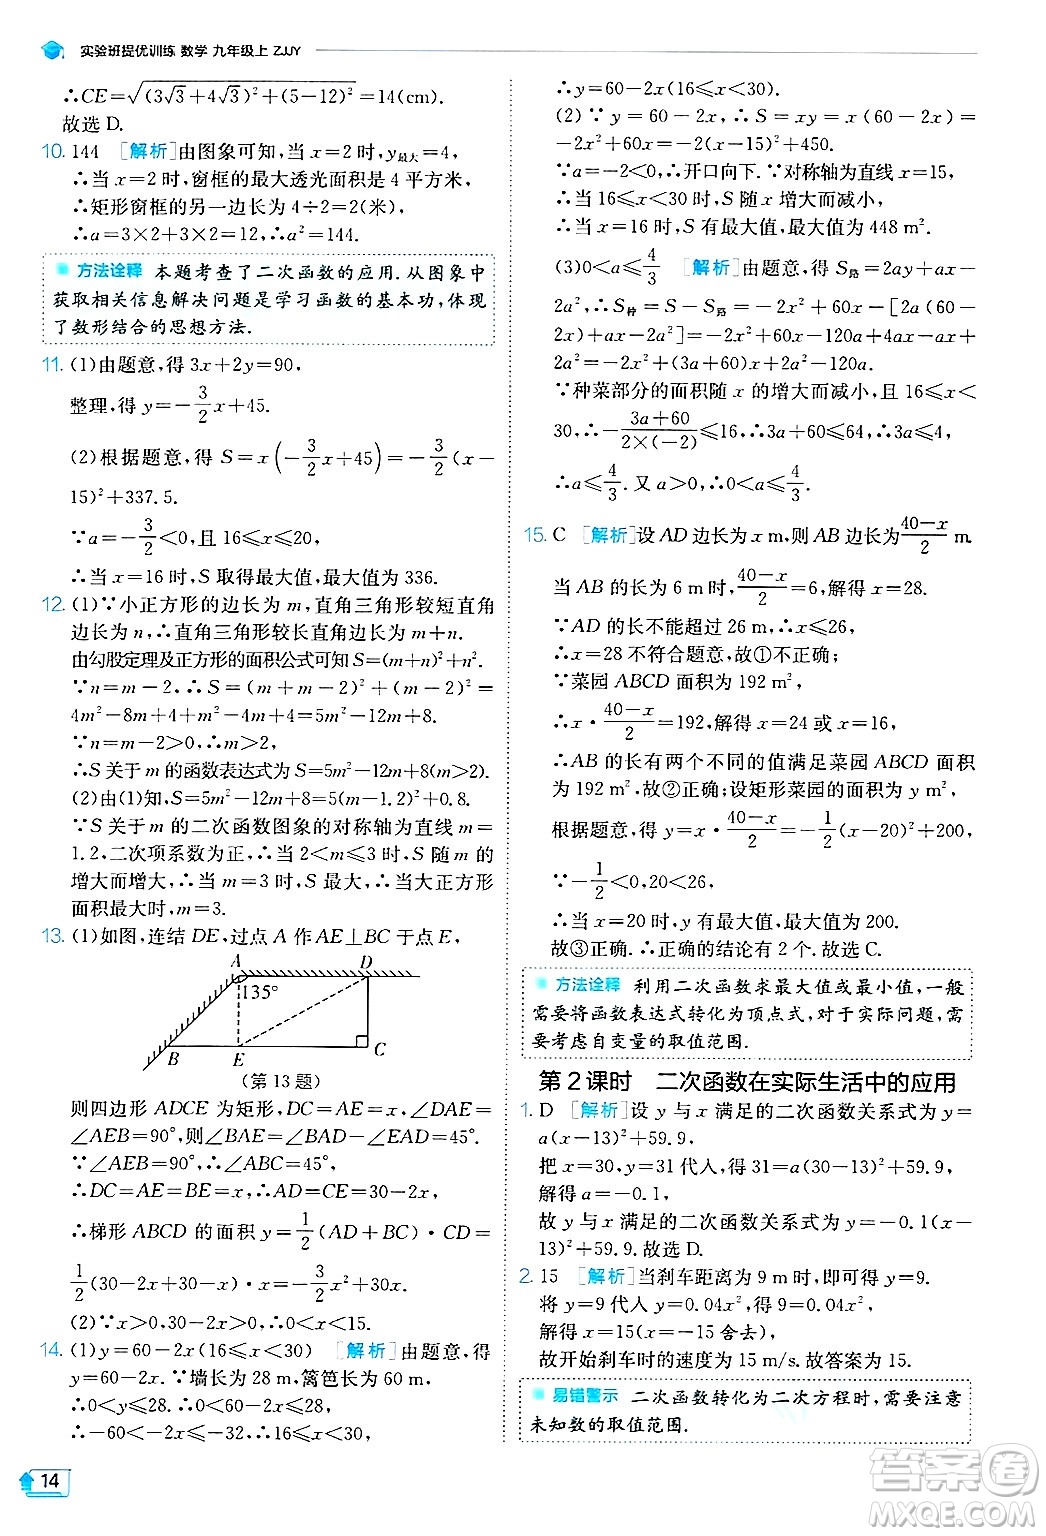 实验班提优训练 数学 九年级上 ZJJY
∴CE=√((3√3+4√3)²+(5-12)²)=14(cm).
故选 D.
10. 144 [解析]由图象可知,当 x=2 时,y最大=4,
∴当 x=2 时,窗框的最大透光面积是 4 平方米,
∴矩形窗框的另一边长为 4÷2=2(米),
∴a=3×2+3×2=12,∴a²=144.
方法诠释 本题考查了二次函数的应用.从图象中
获取相关信息解决问题是学习函数的基本功,体现
了数形结合的思想方法.
11. (1)由题意,得 3x+2y=90,
整理,得 y=-3/2x+45.
(2)根据题意,得 S=x(-3/2x+45)=-3/2(x-
15)²+337.5.
∵a=-3/2<0,且 16≤x≤20,
∴当 x=16 时,S 取得最大值,最大值为 336.
12. (1)∵小正方形的边长为 m,直角三角形较短直角
边长为 n,∴直角三角形较长直角边长为 m+n.
由勾股定理及正方形的面积公式可知 S=(m+n)²+n².
∵n=m-2,∴S=(m+m-2)²+(m-2)²=
4m²-8m+4+m²-4m+4=5m²-12m+8.
∵n=m-2>0,∴m>2,
∴S 关于 m 的函数表达式为 S=5m²-12m+8(m>2).
(2)由(1)知,S=5m²-12m+8=5(m-1.2)²+0.8.
∵S 关于 m 的二次函数图象的对称轴为直线 m=
1.2,二次项系数为正,∴当 2<m≤3 时,S 随 m 的
增大而增大,∴当 m=3 时,S 最大,∴大正方形
面积最大时,m=3.
13. (1)如图,连结 DE,过点 A 作 AE⊥BC 于点 E,
A D
135°
B E C
(第 13 题)
则四边形 ADCE 为矩形,DC=AE=x,∠DAE=
∠AEB=90°,则∠BAE=∠BAD-∠EAD=45°.
∵∠AEB=90°,∴∠ABC=45°,
∴DC=AE=BE=x,∴AD=CE=30-2x,
∴梯形 ABCD 的面积 y=1/2(AD+BC)·CD=
1/2(30-2x+30-x)·x=-3/2x²+30x.
(2)∵x>0,30-2x>0,∴0<x<15.
14. (1)y=60-2x(16≤x<30) [解析]由题意,得
y=60-2x.∵墙长为 28 m,篱笆总长为 60 m,
∴0<y≤28,∴0<60-2x≤28,
∴-60<-2x≤-32,∴16≤x<30.
∴y=60-2x(16≤x<30).
(2)∵y=60-2x,∴S=xy=x(60-2x)=
-2x²+60x=-2(x-15)²+450.
∵a=-2<0,∴开口向下.∵对称轴为直线 x=15,
∴当 16≤x<30 时,S 随 x 的增大而减小,
∴当 x=16 时,S 有最大值,最大值为 448 m².
(3)0<a≤4/3 [解析]由题意,得 S路=2ay+ax-
2a²,∴S种=S-S路=x(60-2x)-[2a(60-
2x)+ax-2a²]=-2x²+60x-120a+4ax-ax+
2a²=-2x²+(3a+60)x+2a²-120a.
∵种菜部分的面积随 x 的增大而减小,且 16≤x<
30,∴-(3a+60)/(2×(-2))≤16,∴3a+60≤64,∴3a≤4,
∴a≤4/3.又 a>0,∴0<a≤4/3.
15. C [解析]设 AD 边长为 x m,则 AB 边长为(40-x)/2 m.
当 AB 的长为 6 m 时,(40-x)/2=6,解得 x=28.
∵AD 的长不能超过 26 m,∴x≤26,
∴x=28 不符合题意,故①不正确;
∵菜园 ABCD 面积为 192 m²,
∴x·(40-x)/2=192,解得 x=24 或 x=16,
∴AB 的长有两个不同的值满足菜园 ABCD 面积
为 192 m²,故②正确;设矩形菜园的面积为 y m²,
根据题意,得 y=x·(40-x)/2=-1/2(x-20)²+200.
∵-1/2<0,20<26,
∴当 x=20 时,y 有最大值,最大值为 200.
故③正确.∴正确的结论有 2 个.故选 C.
方法诠释 利用二次函数求最大值或最小值,一般
需要将函数表达式转化为顶点式,对于实际问题,需
要考虑自变量的取值范围.
第 2 课时 二次函数在实际生活中的应用
1. D [解析]设 y 与 x 满足的二次函数关系式为 y=
a(x-13)²+59.9,
把 x=30,y=31 代入,得 31=a(30-13)²+59.9,
解得 a=-0.1,
故 y 与 x 满足的二次函数关系式为 y=-0.1(x-
13)²+59.9.故选 D.
2. 15 [解析]当刹车距离为 9 m 时,即 y=9.
将 y=9 代入 y=0.04x²,得 9=0.04x²,
解得 x=15(x=-15 舍去),
故开始刹车时的速度为 15 m/s.故答案为 15.
易错警示 二次函数转化为二次方程时,需要注意
未知数的取值范围.
14
答案圈
MXQE.COM